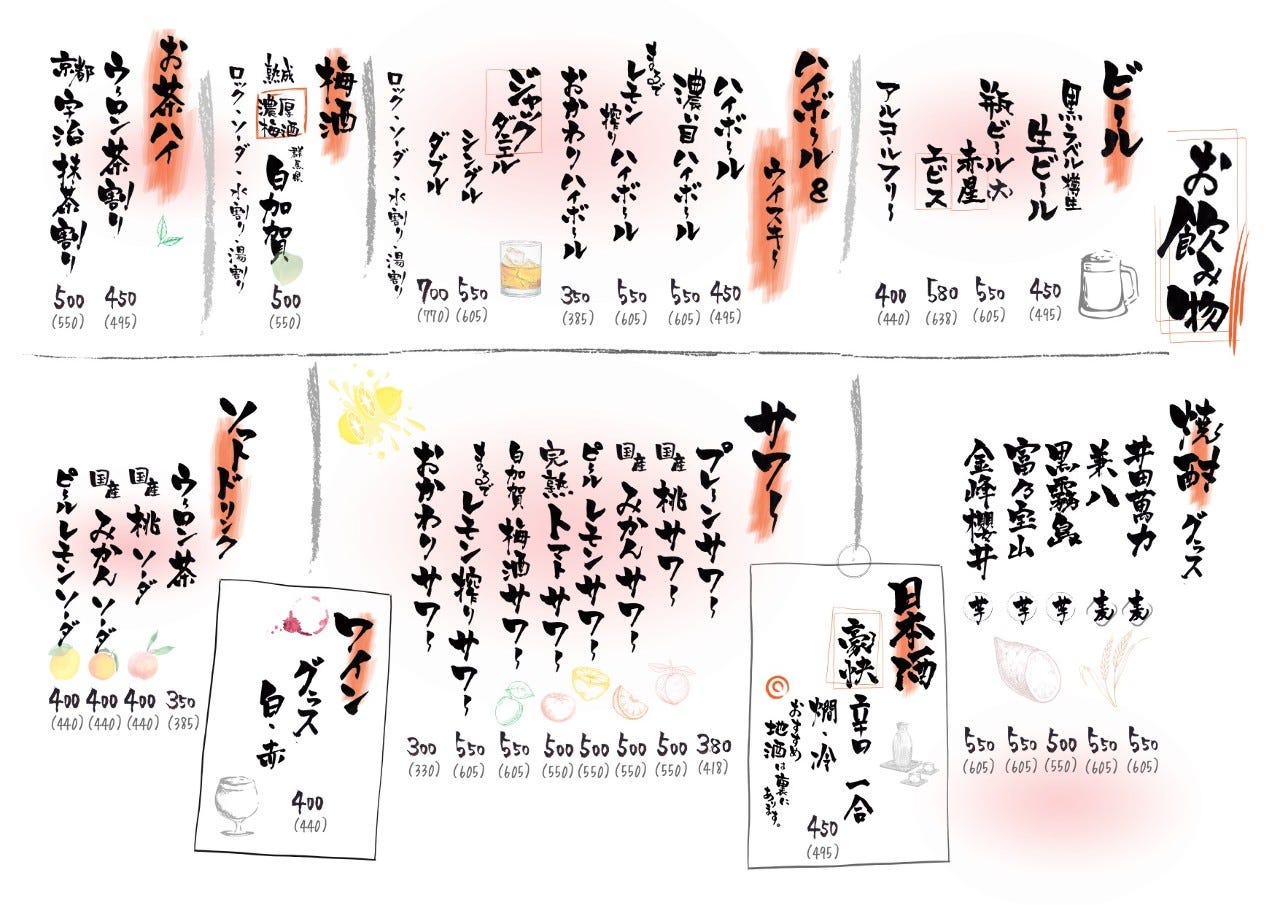 お飲み物
ビール
黒ラベル樽生
生ビール
450
(495)
瓶ビール大
赤星
550
(605)
ヱビス
580
(638)
アルコールフリー
400
(440)
ハイボール&
ウイスキー
ハイボール
450
(495)
濃い目ハイボール
550
(605)
まるで
レモン搾りハイボール
550
(605)
おかわりハイボール
350
(385)
ジャック
ダニエル
シングル
550
(605)
ダブル
700
(770)
ロック・ソーダ・水割り・湯割り
梅酒
熟成
濃厚
梅酒
群馬県
白加賀
500
(550)
ロック・ソーダ・水割り・湯割り
お茶ハイ
ウーロン茶割り
450
(495)
京都宇治抹茶割り
500
(550)
焼酎グラス
井田萬力
麦
550
(605)
兼八
麦
550
(605)
黒霧島
芋
500
(550)
富乃宝山
芋
550
(605)
金峰櫻井
芋
550
(605)
日本酒
豪快
辛口一合
燗・冷
450
(495)
おすすめ
地酒は裏に
あります。
サワー
プレーンサワー
380
(418)
国産桃サワー
500
(550)
国産みかんサワー
500
(550)
ピールレモンサワー
500
(550)
完熟トマトサワー
500
(550)
白加賀梅酒サワー
550
(605)
まるでレモン搾りサワー
550
(605)
おかわりサワー
300
(330)
ワイン
グラス
白・赤
400
(440)
ソフトドリンク
ウーロン茶
350
(385)
国産桃ソーダ
400
(440)
国産みかんソーダ
400
(440)
ピールレモンソーダ
400
(440)